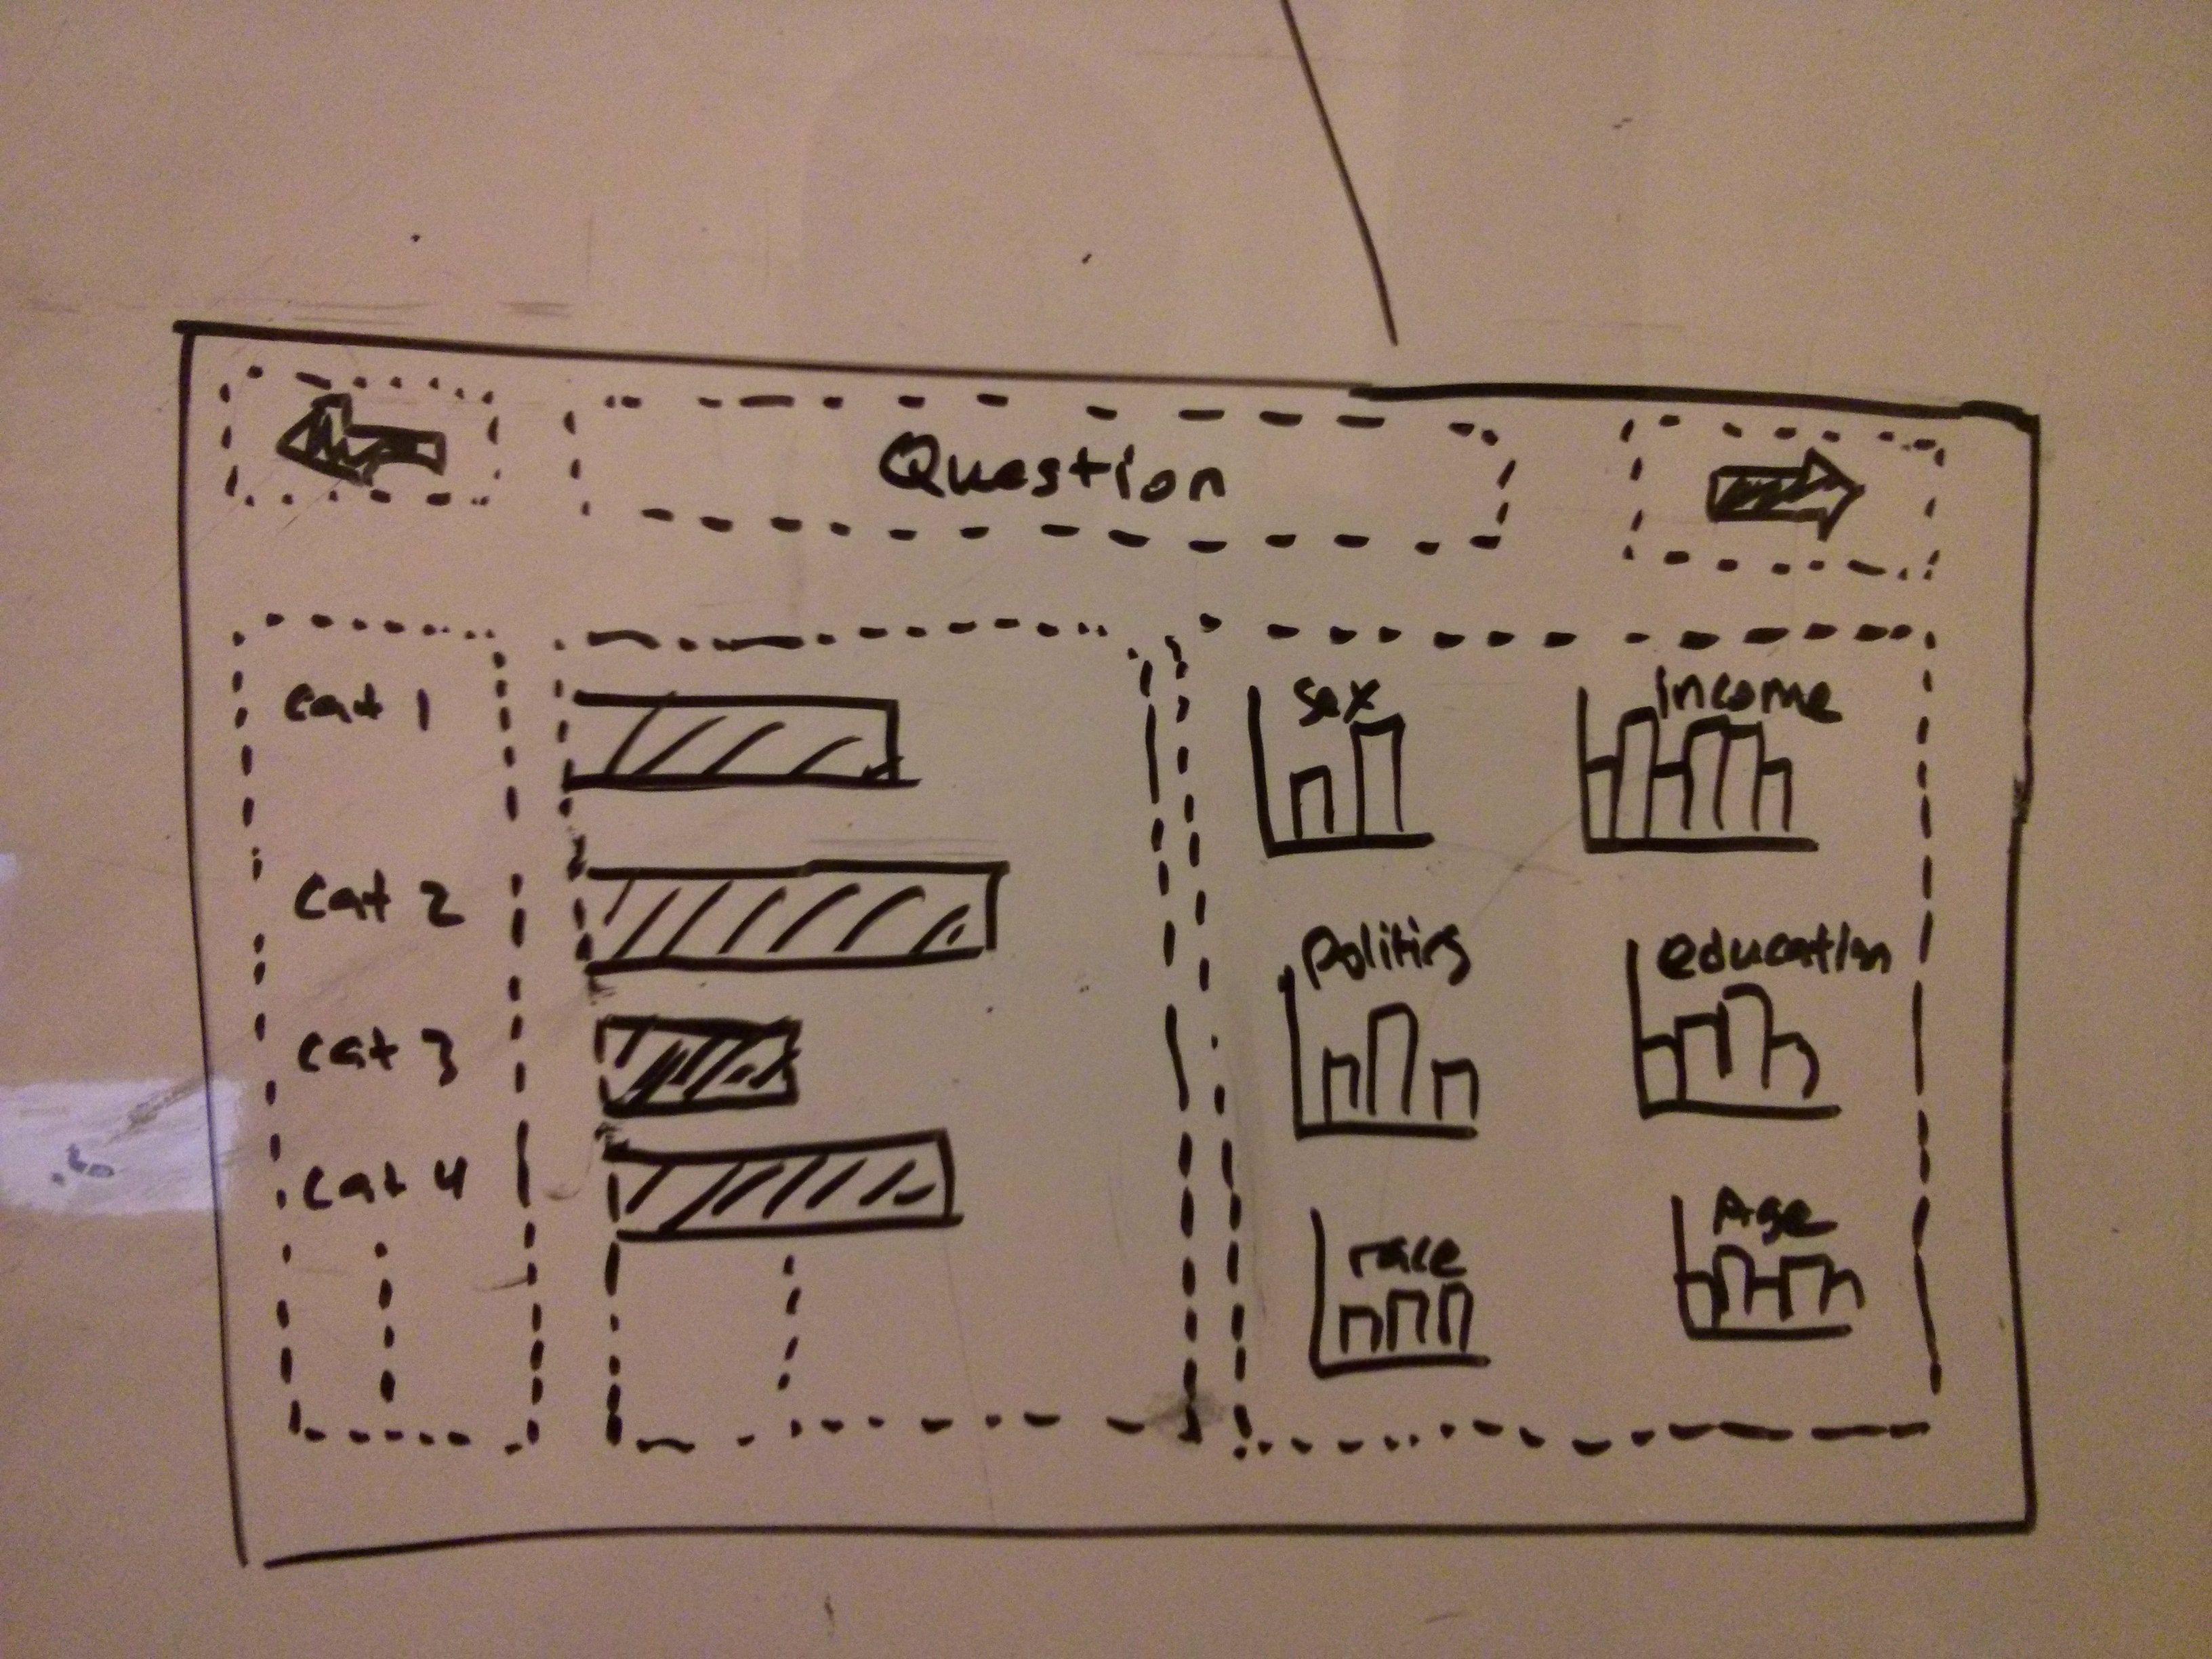 Question
cat 1
cat 2
cat 3
cat 4
sex
income
politics
education
race
Age